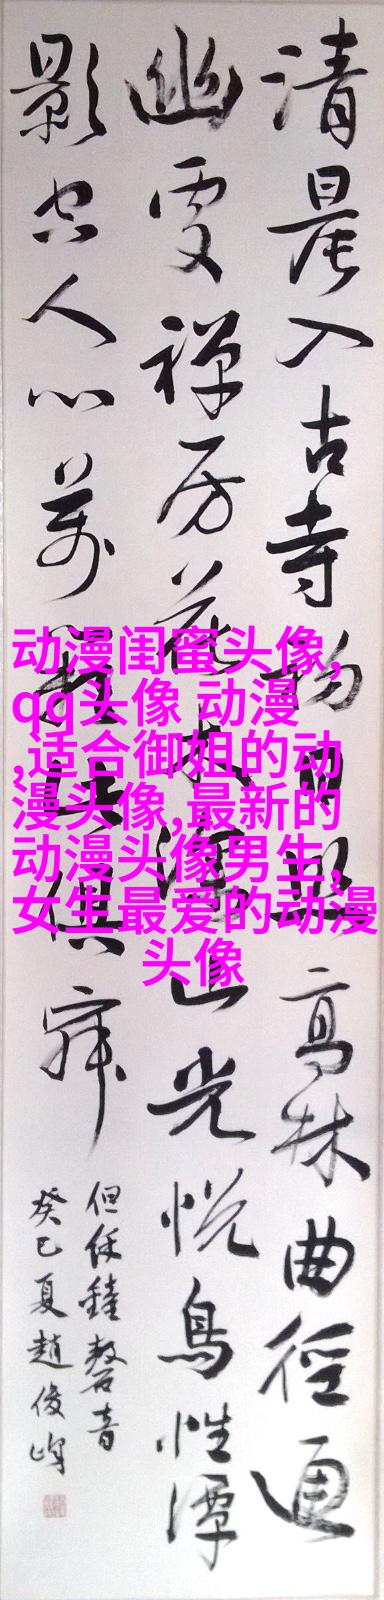 清晨入古寺初日照高林曲徑通
幽處禅房花木深山光悦鳥性潭
影空人心萬籟此俱寂
但餘鐘磬音
癸巳夏趙俊峰
动漫闺蜜头像,
qq头像 动漫
,适合御姐的动
漫头像,最新的
动漫头像男生,
女生最爱的动漫
头像